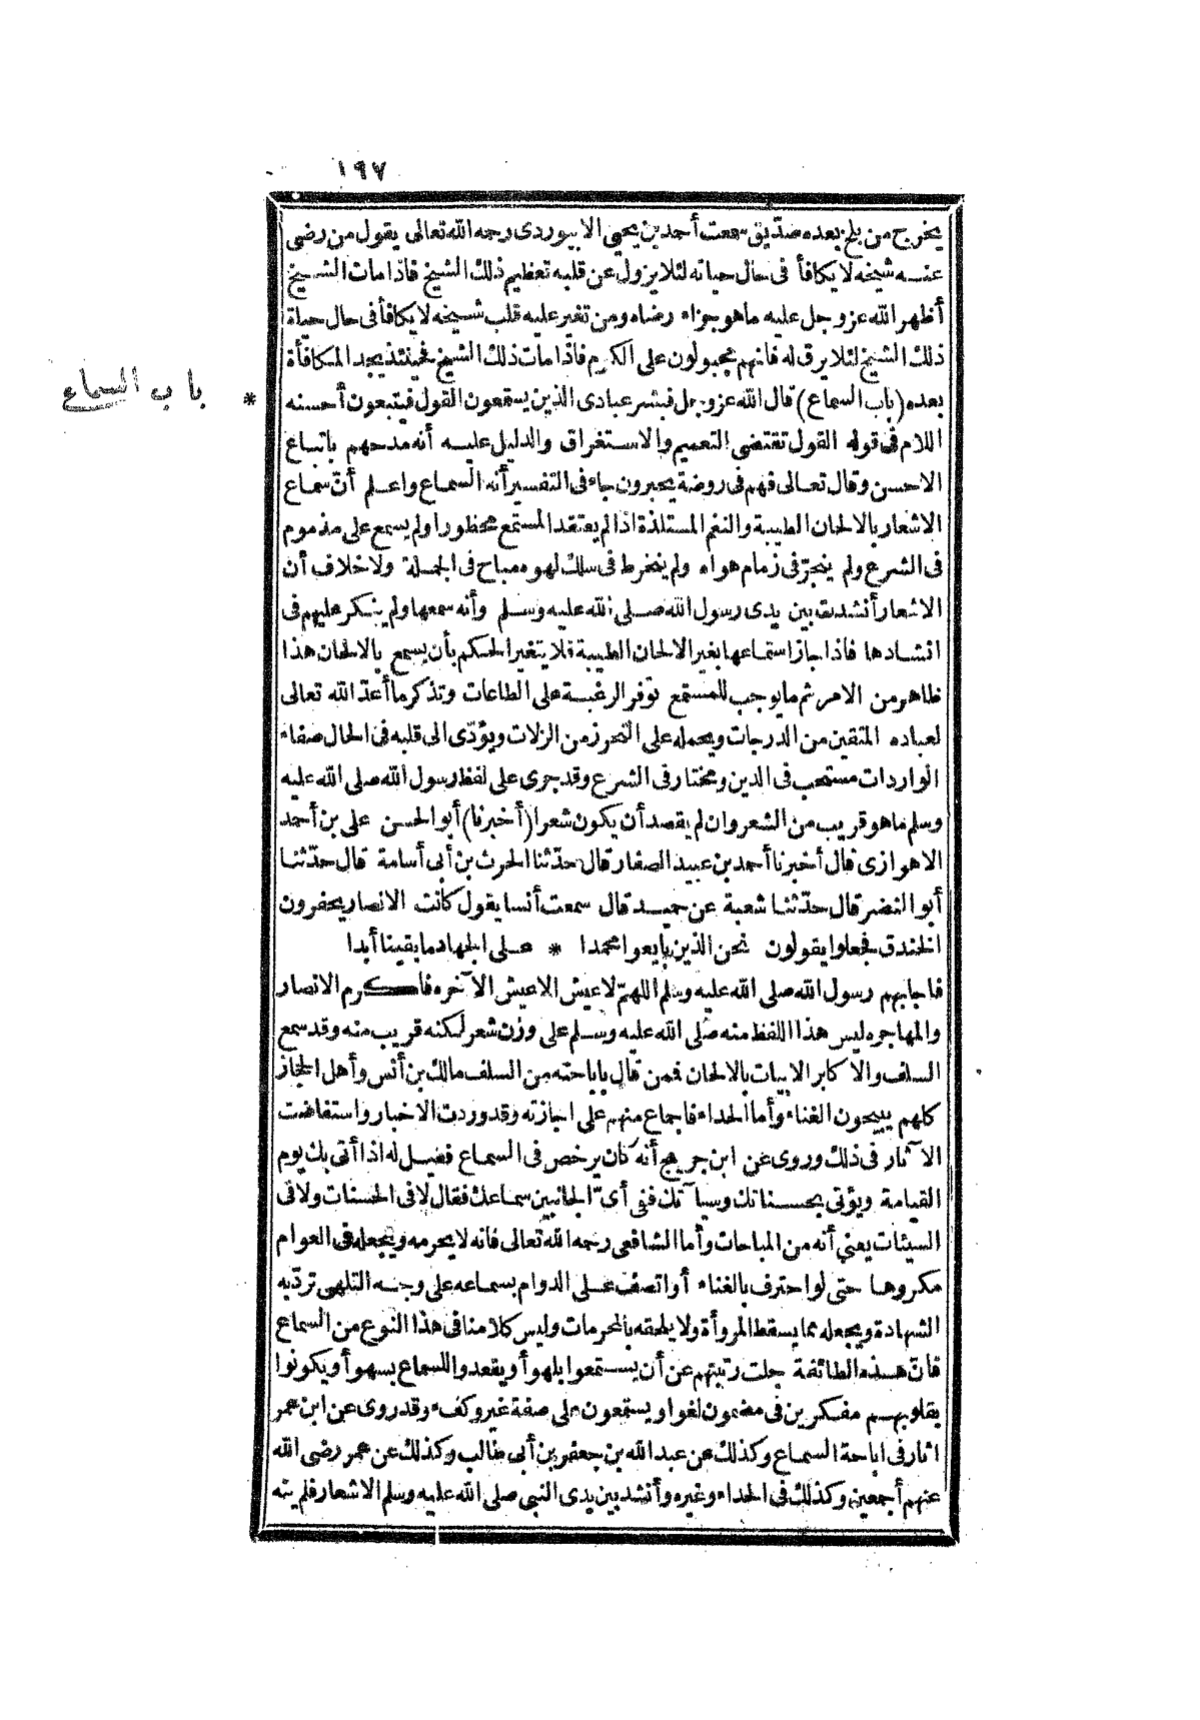 ١٩٧
يخرج من بلخ بعده صدّيق سمعت أحمد بن يحيى الابيوردى رحمه الله تعالى يقول من رضى
عنه شيخه لا يكافأ فى حال حياته لئلا يزول عن قلبه تعظيم ذلك الشيخ فاذا مات الشيخ
أظهر الله عز وجل عليه ما هو جزاء رضاه ومن تغير عليه قلب شيخه لا يكافأ فى حال حياة
ذلك الشيخ لئلا يرق له فانهم مجبولون على الكرم فاذا مات ذلك الشيخ فحينئذ يجد المكافأة
بعده (باب السماع) قال الله عز وجل فبشر عبادى الذين يستمعون القول فيتبعون أحسنه *
باب السماع
اللام فى قوله القول تقتضى التعميم والاستغراق والدليل عليه أنه مدحهم باتباع
الاحسن وقال تعالى فهم فى روضة يحبرون جاء فى التفسير أنه السماع واعلم أنّ سماع
الاشعار بالالحان الطيبة والنغم المستلذة اذا لم يعتقد المستمع محظورا ولم يسمع على مذموم
فى الشرع ولم ينجرّ فى زمام هواه ولم ينخرط فى سلك لهوه مباح فى الجملة ولا خلاف أن
الاشعار أنشدت بين يدى رسول الله صلى الله عليه وسلم وأنه سمعها ولم ينكر عليهم فى
انشادها فاذا جاز استماعها بغير الالحان الطيبة فلا يتغير الحكم بأن يسمع بالالحان هذا
ظاهر من الامر ثم ما يوجب للمستمع توفر الرغبة على الطاعات وتذكر ما أعدّ الله تعالى
لعباده المتقين من الدرجات ويحمله على التحرز من الزلات ويؤدّى الى قلبه فى الحال صفاء
الواردات مستحب فى الدين ومختار فى الشرع وقد جرى على لفظ رسول الله صلى الله عليه
وسلم ما هو قريب من الشعر وان لم يقصد أن يكون شعرا (أخبرنا) أبو الحسن على بن أحمد
الاهوازى قال أخبرنا أحمد بن عبيد الصفار قال حدّثنا الحرث بن أبى أسامة قال حدّثنا
أبو النضر قال حدّثنا شعبة عن حميد قال سمعت أنسا يقول كانت الانصار يحفرون
الخندق فجعلوا يقولون نحن الذين بايعوا محمدا * على الجهاد ما بقينا أبدا
فاجابهم رسول الله صلى الله عليه وسلم اللهمّ لا عيش الا عيش الآخره فاكرم الانصار
والمهاجره ليس هذا اللفظ منه صلى الله عليه وسلم على وزن شعر لكنه قريب منه وقد سمع
السلف والاكابر الابيات بالالحان فمن قال باباحته من السلف مالك بن أنس وأهل الحجاز
كلهم يبيحون الغناء وأما الحداء فاجماع منهم على اجازته وقد وردت الاخبار واستفاضت
الآثار فى ذلك وروى عن ابن جريج أنه كان يرخص فى السماع فقيل له اذا أتى بك يوم
القيامة ويؤتى بحسناتك وسيآتك ففى أىّ الجانبين سماعك فقال لا فى الحسنات ولا فى
السيئات يعنى أنه من المباحات وأما الشافعى رحمه الله تعالى فانه لا يحرمه ويجعله فى العوام
مكروها حتى لو احترف بالغناء أو اتصف على الدوام بسماعه على وجه التلهى تردّ به
الشهادة ويجعله مما يسقط المروأة ولا يلحقه بالمحرمات وليس كلامنا فى هذا النوع من السماع
فانّ هذه الطائفة جلت رتبتهم عن أن يستمعوا بلهو أو يقعدوا للسماع بسهو أو يكونوا
بقلوبهم مفكرين فى مضمون لغو أو يستمعون على صفة غير كفء وقد روى عن ابن عمر
اثار فى اباحة السماع وكذلك عن عبد الله بن جعفر بن أبى طالب وكذلك عن عمر رضى الله
عنهم أجمعين وكذلك فى الحداء وغيره وأنشد بين يدى النبى صلى الله عليه وسلم الاشعار فلم ينه